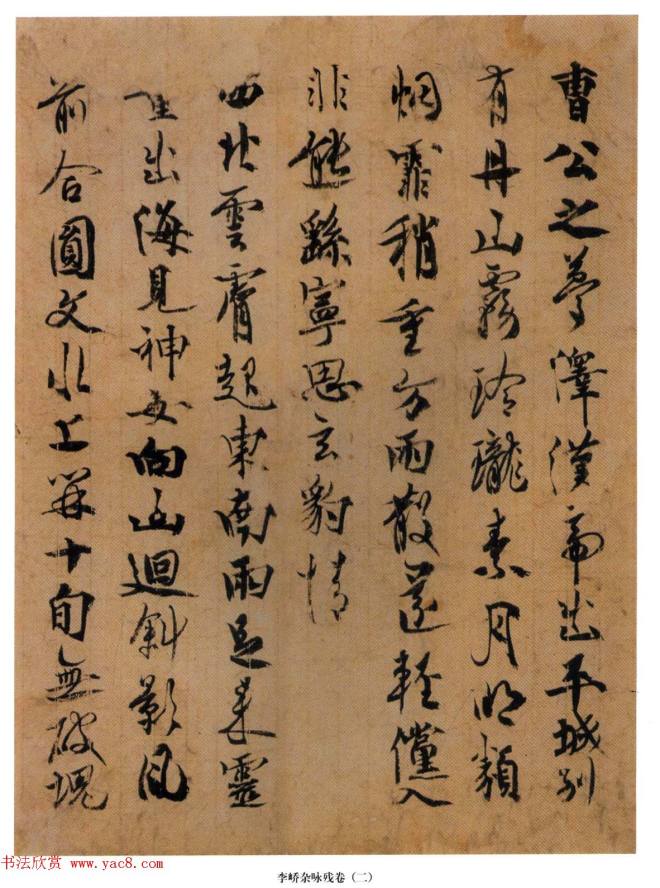 曹公之夢澤漢帝出平城別
有丹山霧玲瓏素月明類
烟霏稍重方雨散還輕儻入
非熊繇寧思玄豹情
西北雲膚起東南雨足来靈
童出海見神女向山迴斜影風
前合圓文水上開十旬無破塊
书法欣赏 www.yac8.com
李峤杂咏残卷(二)